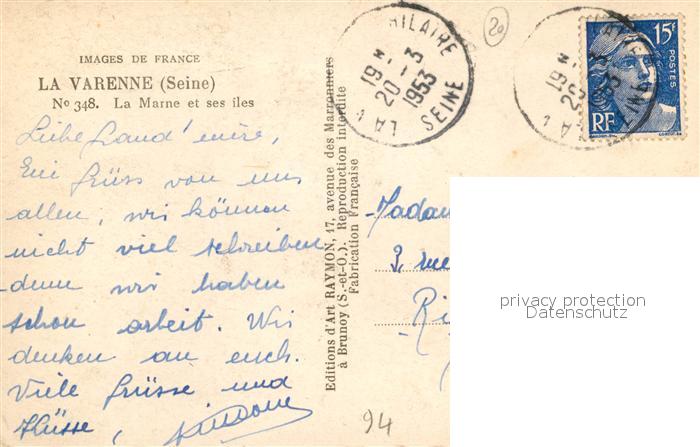 IMAGES DE FRANCE
LA VARENNE (Seine)
No 348. La Marne et ses îles
Liebe Grand' mère,
Ein Grüss von uns
allen, wir können
nicht viel schreiben
denn wir haben
schon arbeit. Wir
denken an euch.
Viele Grüsse und
Küsse,
Editions d'Art RAYMON, 17, avenue des Marronniers
à Brunoy (S.-et-O.). Reproduction interdite
Fabrication Française
HILAIRE
19 H
20 - 3
1953
LA
SEINE
20
15F
POSTES
RF
Madam
3, rue
Ri
privacy protection
Datenschutz
94